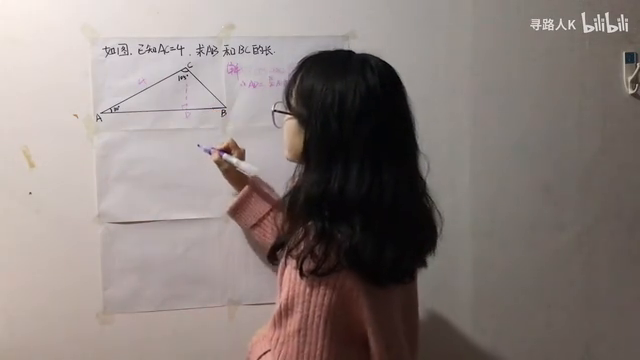 寻路人K bilibili
如图，已知AC=4，求AB和BC的长.
C
105°
4
30°
A
B
D
解